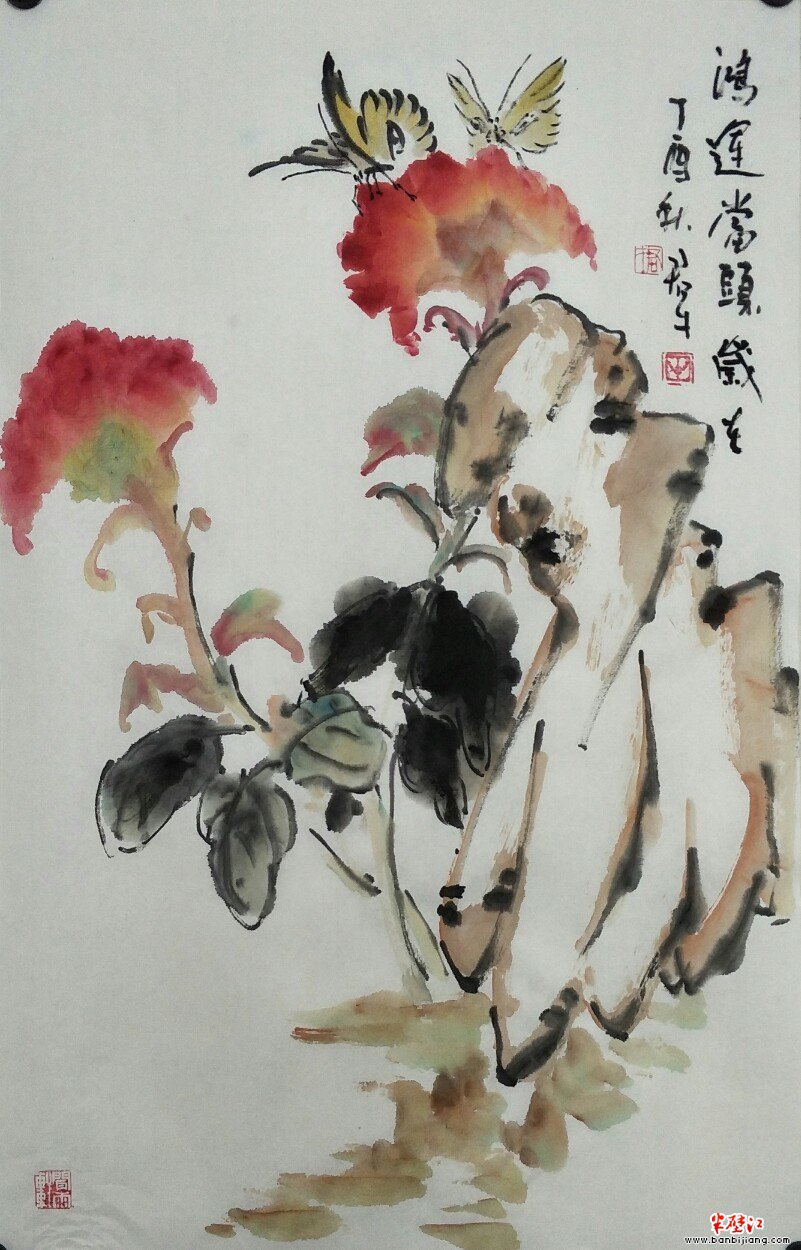 鴻運當頭歲在
丁酉秋君牛
半壁江
www.banbijiang.com